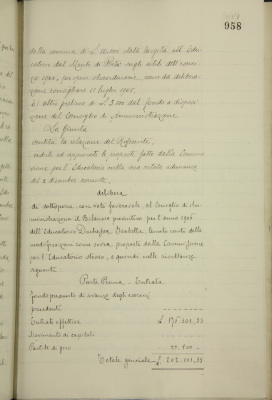 958
della somma di L. 20.000 dalla
dal Monte dei Paschi sugli utili dell'eser-
cizio 1904, per spese straordinarie, come da delibera-
zione consigliare 11 luglio 1905,
E l'altro prelievo di L. 3.000 dal fondo a disposi-
zione del Consiglio di Amministrazione
La Giunta
sentita la relazione del Referente,
vedute ed approvate le proposte fatte dalla Commis-
sione per l'Educatorio nella sua adunanza
del 2 dicembre corrente,
delibera
di sottoporre, con voto favorevole, al Consiglio di Am-
ministrazione il Bilancio preventivo per l'anno 1906
dell'Educatorio Duchessa Isabella, tenuto conto delle
modificazioni come sopra, proposte dalla Commissione
per l'Educatorio stesso, e quindi nelle risultanze
seguenti:
Parte Prima - Entrata
Fondo presunto di avanzo degli esercizi
precedenti
Entrate effettive L.
Movimento di capitali
Partite di giro
Totale generale L.